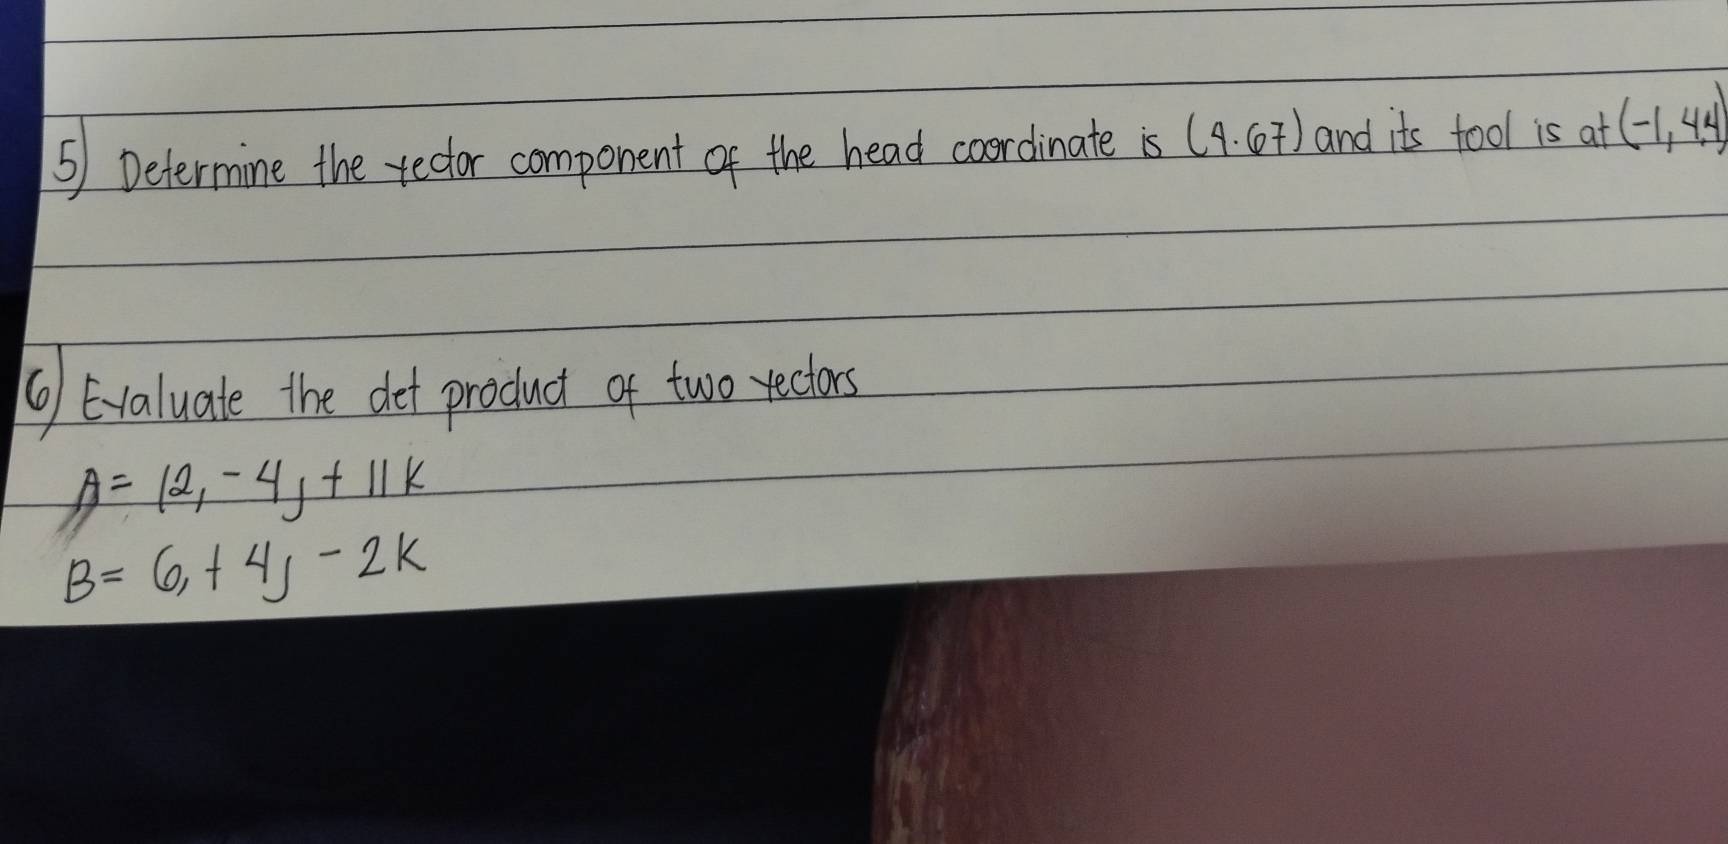 5) Determine the vector component of the head coordinate is (9.67) and its tool is at (-1,4,4)
6) Evaluate the det product of two vectors
A = 12, - 4j + 11k
B = 6, + 4j - 2k